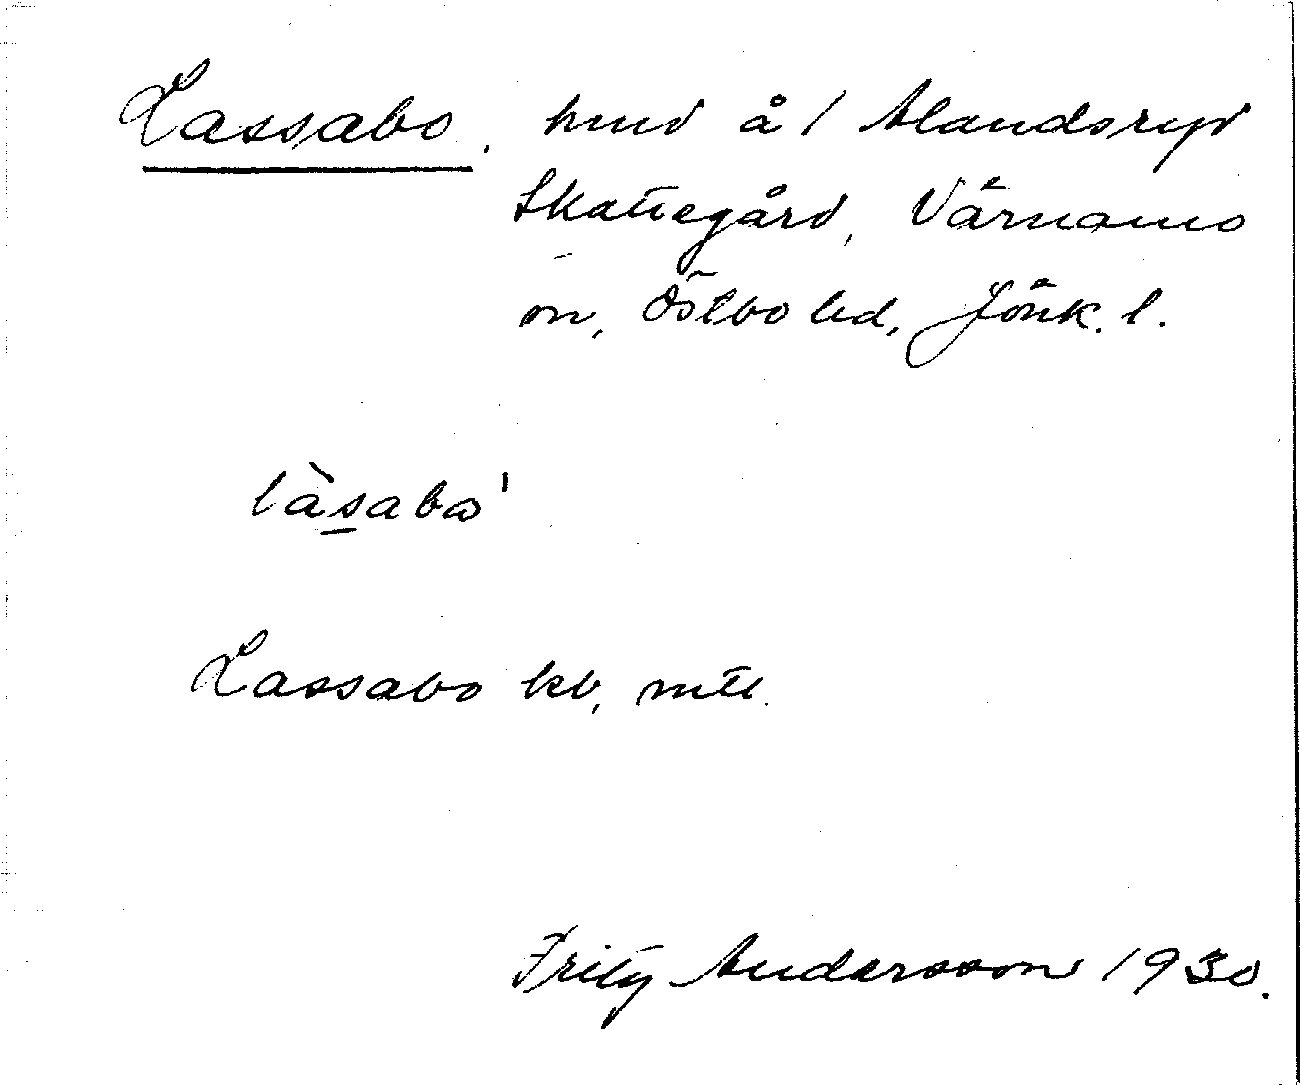 Lassabo, hmd å 1 Alandsryd
Skattegård, Värnamo
sn, Östbo hd, Jönk. l.
làsabω'
Lassabo kb, mtl.
Fritz Andersson 1930.